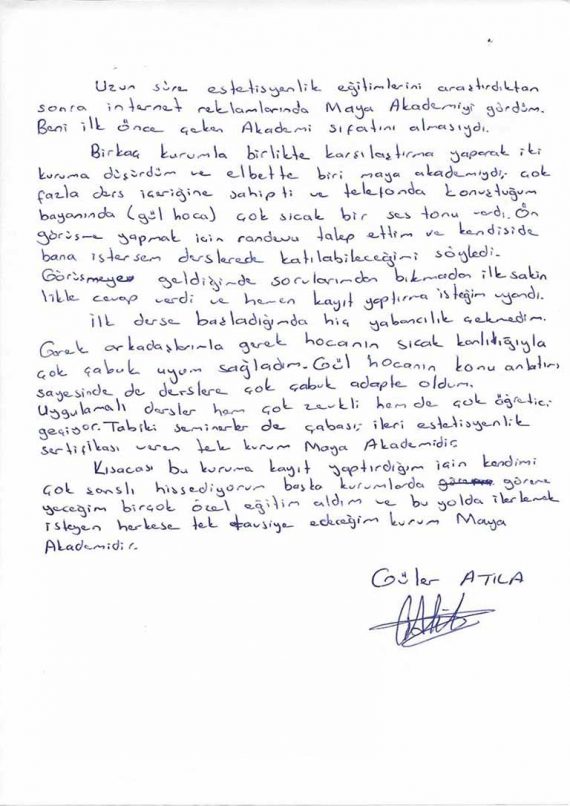 Uzun süre estetisyenlik eğitimlerini araştırdıktan
sonra internet reklamlarında Maya Akademiyi gördüm.
Beni ilk önce çeken Akademi sıfatını almasıydı.
Birkaç kurumla birlikte karşılaştırma yaparak iki
kuruma düşürdüm ve elbette biri maya akademiydi, çok
fazla ders içeriğine sahipti ve telefonda konuştuğum
bayanında (gül hoca) çok sıcak bir ses tonu vardı. Ön
görüşme yapmak için randevu talep ettim ve kendiside
bana istersem derslerede katılabileceğimi söyledi.
Görüşmeye geldiğinde sorularımdan bıkmadan ilk sakin
likle cevap verdi ve hemen kayıt yaptırma isteğim uyandı.
İlk derse başladığımda hiç yabancılık çekmedim.
Gerek arkadaşlarımla gerek hocanın sıcak kanlılığıyla
çok çabuk uyum sağladım. Gül hocanın konu anlatımı
sayesinde de derslere çok çabuk adapte oldum.
Uygulamalı dersler hem çok zevkli hem de çok öğretici
geçiyor. Tabiki seminerler de çabası, ileri estetisyenlik
sertifikası veren tek kurum Maya Akademidir.
Kısacası bu kuruma kayıt yaptırdığım için kendimi
çok şanslı hissediyorum başka kurumlarda göreme
yeceğim birçok özel eğitim aldım ve bu yolda ilerlemek
isteyen herkese tek tavsiye edeceğim kurum Maya
Akademidir.
Güler ATILA